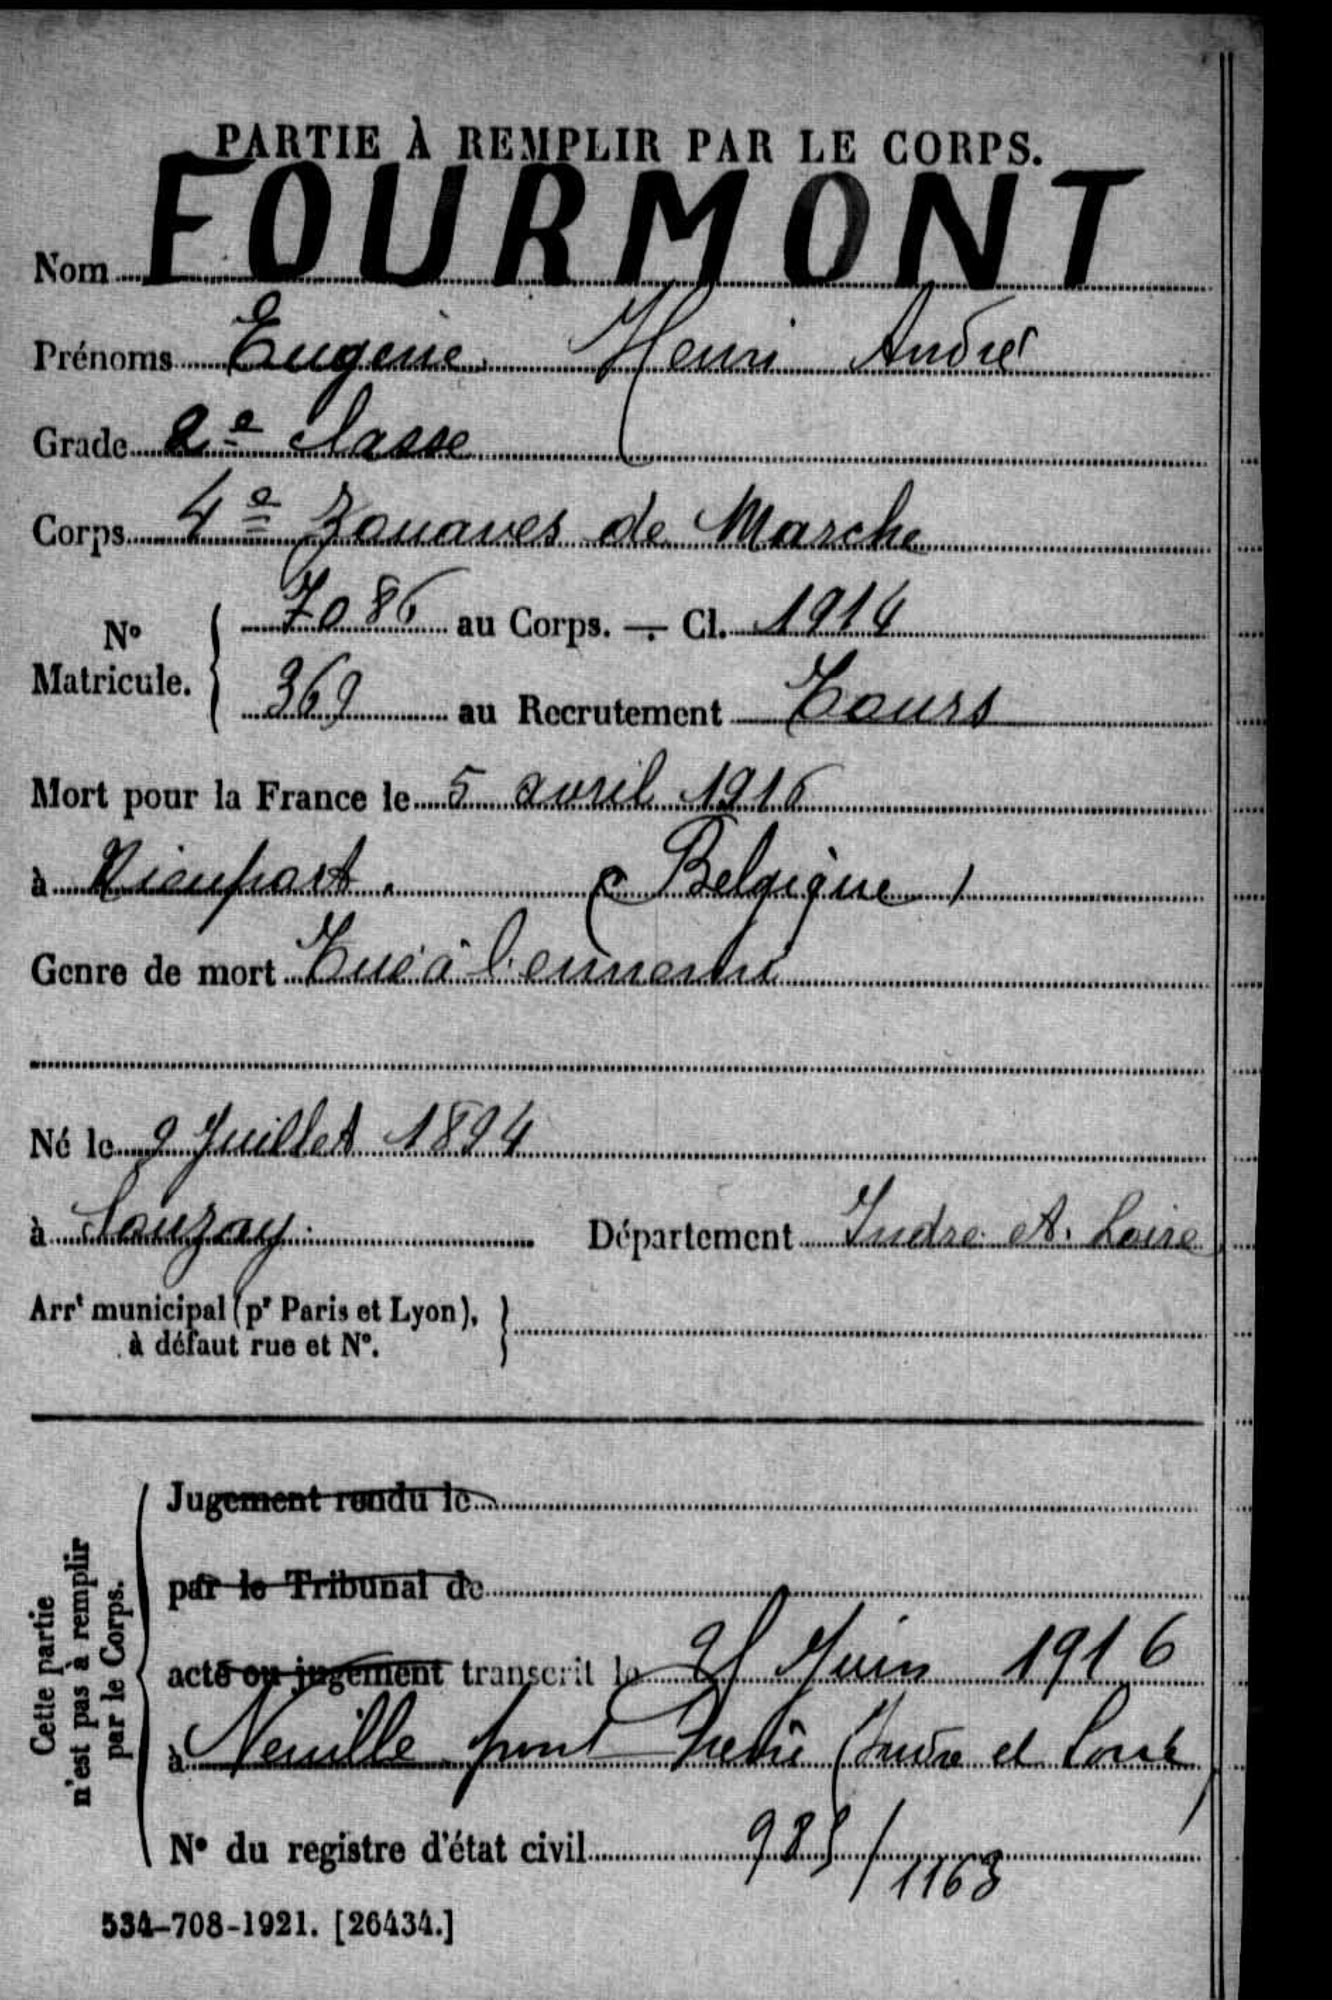 PARTIE À REMPLIR PAR LE CORPS.
Nom FOURMONT
Prénoms Eugène Henri André
Grade 2e classe
Corps 4e Zouaves de Marche
No Matricule. 7086 au Corps. — Cl. 1914
369 au Recrutement Tours
Mort pour la France le 5 avril 1916
à Nieuport. (Belgique)
Genre de mort Tué à l'ennemi
Né le 9 Juillet 1894
à Sonzay. Département Indre et Loire
Arrt municipal (pr Paris et Lyon), à défaut rue et No.
Cette partie n'est pas à remplir par le Corps.
Jugement rendu le
par le Tribunal de
acte ou jugement transcrit le Juin 1916
à Neuille pont Pierre (Indre et Loire)
No du registre d'état civil 985/1163
534-708-1921. [26434.]